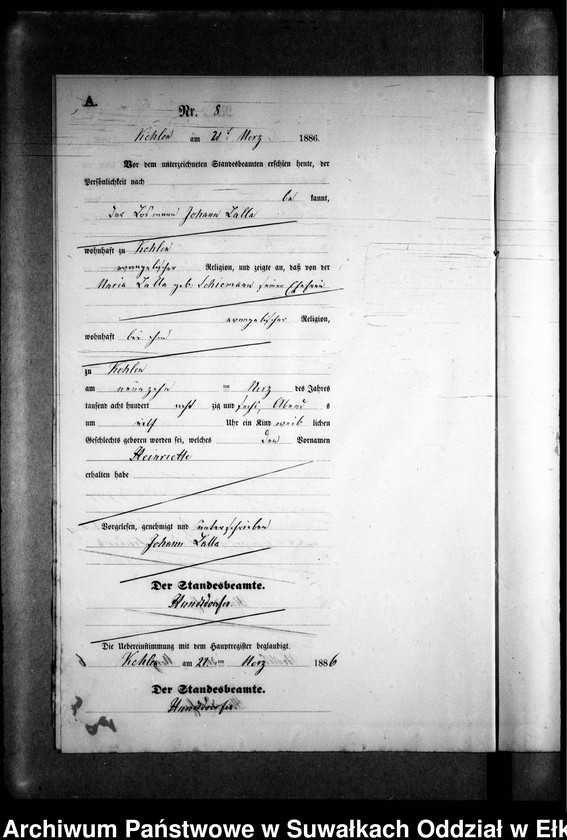 A.
Nr. 8
Kehlen am 21t Merz 1886.
Vor dem unterzeichneten Standesbeamten erschien heute, der
Persönlichkeit nach
be kannt,
der Losmann Johann Lalla
wohnhaft zu Kehlen
evangelischer Religion, und zeigte an, daß von der
Maria Lalla geb. Schiemann seiner Ehefrau
evangelischer Religion,
wohnhaft bei ihm
zu Kehlen
am neunzehn ten Merz des Jahres
tausend acht hundert acht zig und sechs, Abend s
um elf Uhr ein Kind weib lichen
Geschlechts geboren worden sei, welches den Vornamen
Heinriette
erhalten habe
Vorgelesen, genehmigt und unterschrieben
Johann Lalla
Der Standesbeamte.
Hundsdörfer.
Die Uebereinstimmung mit dem Hauptregister beglaubigt.
Kehlen am 21ten Merz 1886
Der Standesbeamte.
Hundsdörfer.
Archiwum Państwowe w Suwałkach Oddział w Ełk